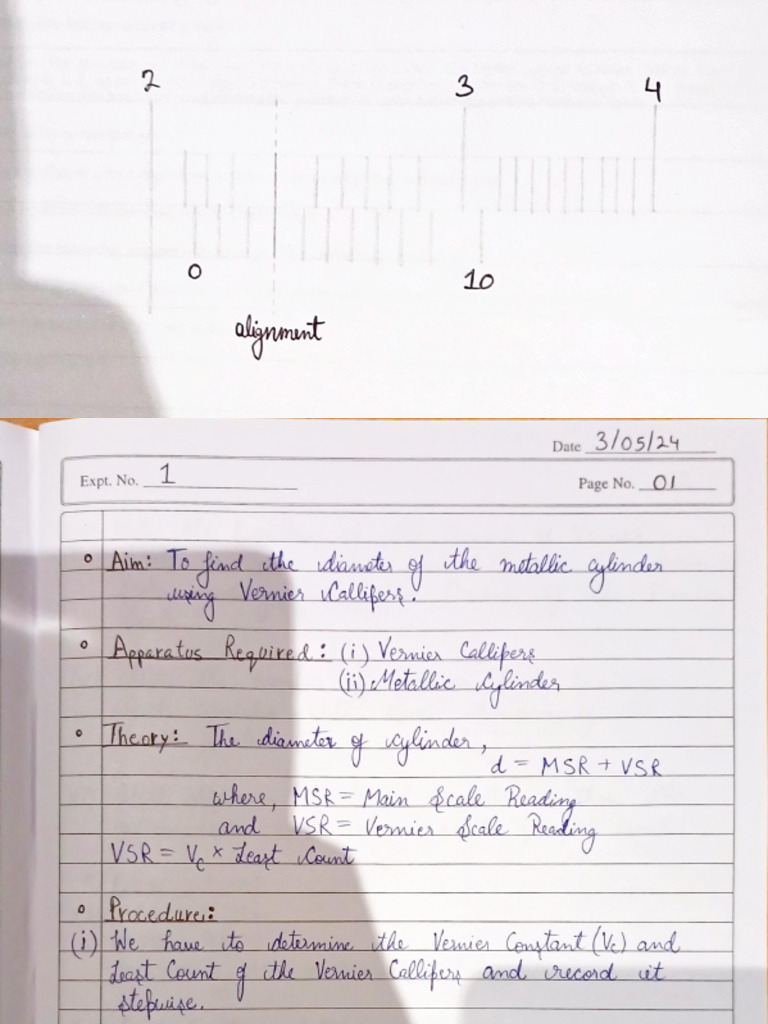 2 3 4
0 10
alignment
Date 3/05/24
Expt. No. 1 Page No. 01
Aim: To find the diameter of the metallic cylinder
using Vernier Callipers.
Apparatus Required: (i) Vernier Callipers
(ii) Metallic Cylinder
Theory: The diameter of cylinder,
d = MSR + VSR
where, MSR = Main Scale Reading
and VSR = Vernier Scale Reading
VSR = Vc × Least Count
Procedure:
(i) We have to determine the Vernier Constant (Vc) and
Least Count of the Vernier Callipers and record it
stepwise.